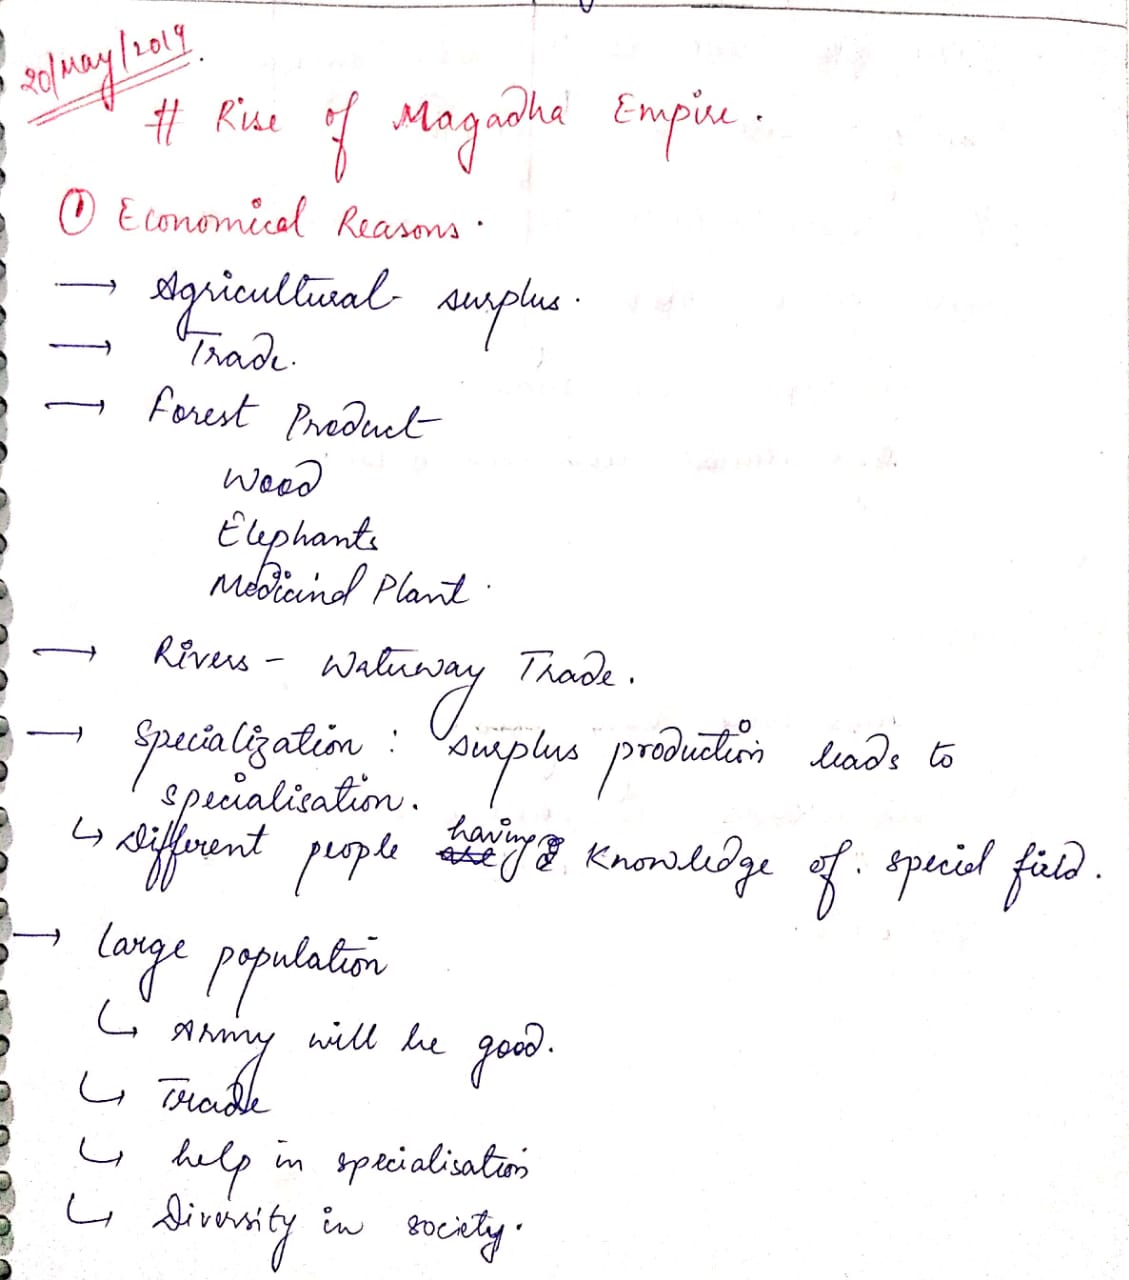 20/May/2019.
# Rise of Magadha Empire.
① Economical Reasons.
→ Agricultural surplus.
→ Trade.
→ Forest Product
Wood
Elephants
Medicinal Plant.
→ Rivers - Waterway Trade.
→ Specialization : surplus production leads to
specialisation.
↳ Different people having knowledge of. special field.
→ Large population
↳ Army will be good.
↳ Trade
↳ help in specialisation
↳ Diversity in society.